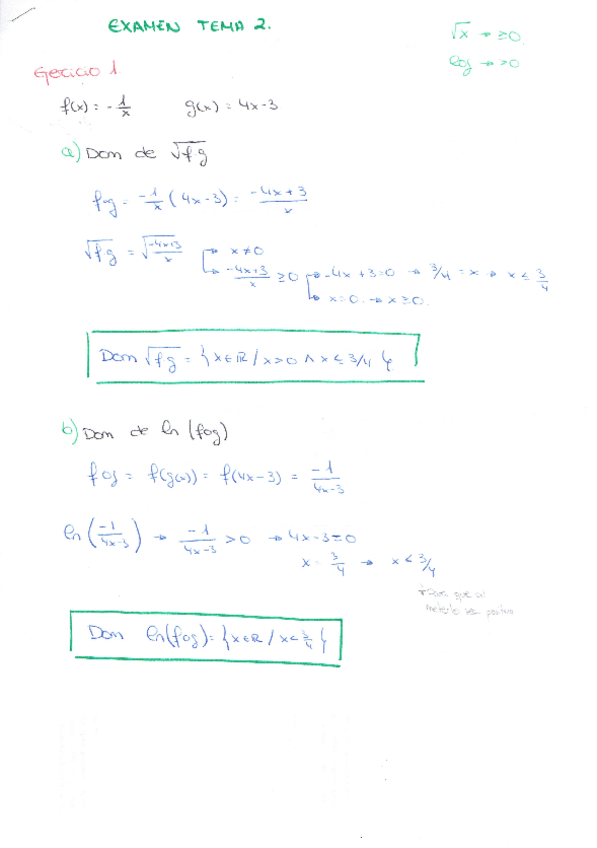 EXAMEN TEMA 2.
√x → ≥0
log → >0
Ejercicio 1
f(x) = -1/x g(x) = 4x-3
a) Dom de √(f·g)
f·g = -1/x (4x-3) = (-4x+3)/x
√(f·g) = √((-4x+3)/x) → x≠0
→ (-4x+3)/x ≥0 → -4x+3=0 → 3/4 = x → x ≤ 3/4
→ x=0 → x≥0.
Dom √(f·g) = {x∈ℝ / x>0 ∧ x≤3/4}
b) Dom de ln (fog)
fog = f(g(x)) = f(4x-3) = -1/(4x-3)
ln (-1/(4x-3)) → -1/(4x-3) >0 → 4x-3=0
x = 3/4 → x<3/4
Para que al
meterlo sea positivo
Dom ln(fog) = {x∈ℝ / x<3/4}